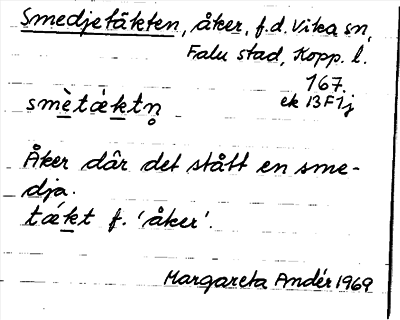 Smedjetäkten, åker, f.d. Vika sn,
Falu stad, Kopp. l.
167.
ek 13F1j
smè̱tǽḵtn̥
Åker där det stått en sme-
dja.
tǽḵt f. 'åker'.
Margareta Andér 1969